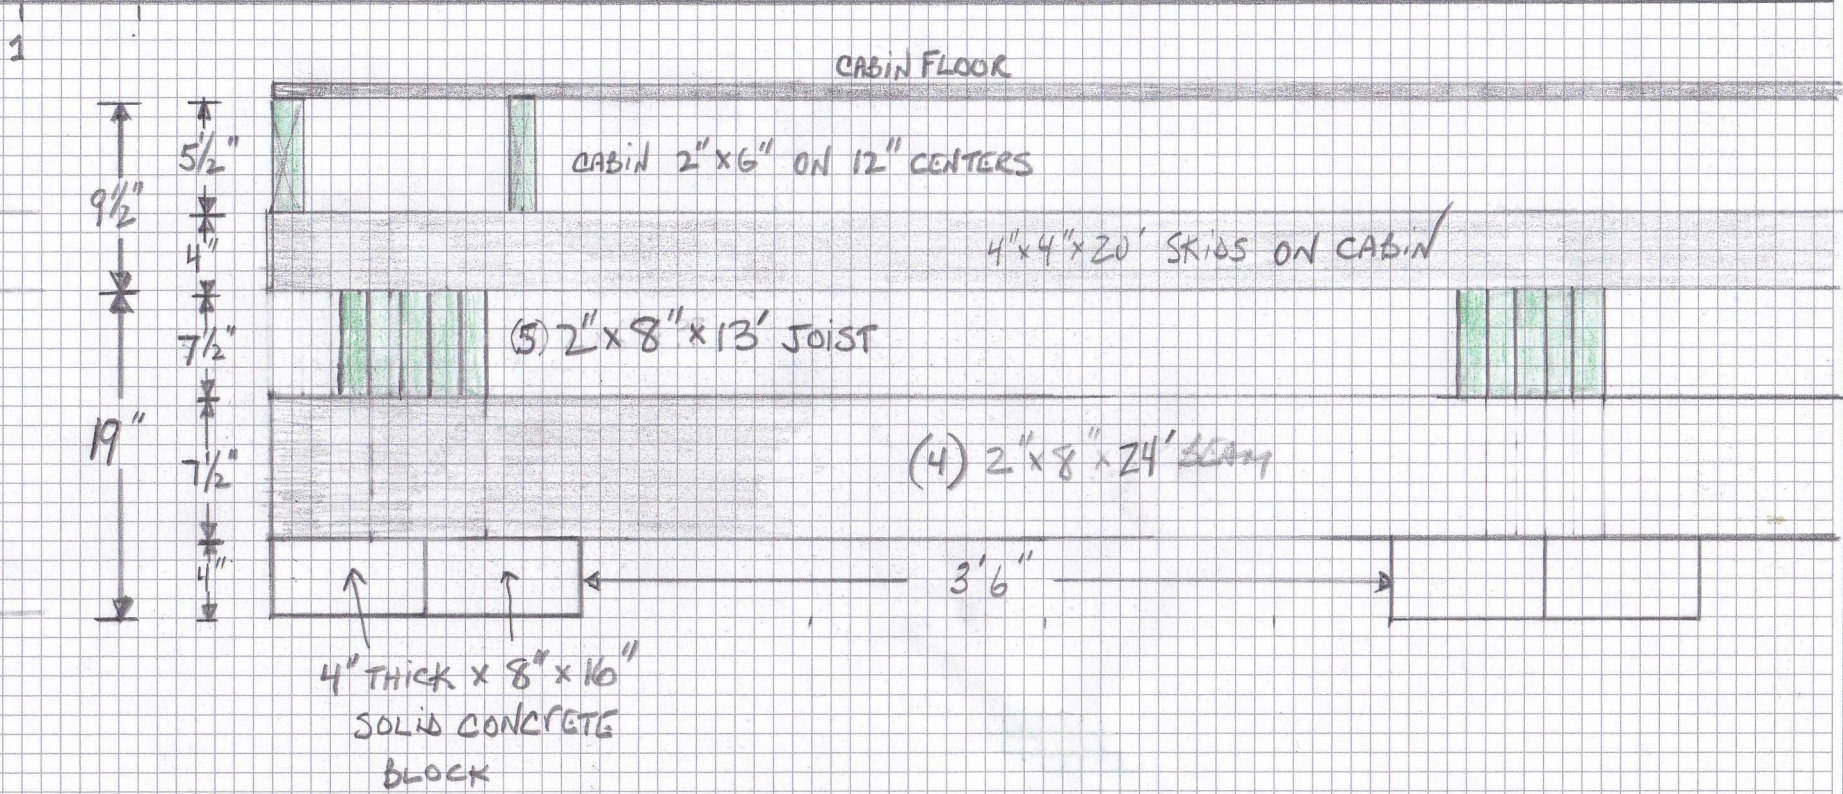 1
CABIN FLOOR
5 1/2"
CABIN 2"x6" ON 12" CENTERS
9 1/2"
4"x4"x20' SKIDS ON CABIN
4"
7 1/2"
(5) 2"x8"x13' JOIST
19"
7 1/2"
(4) 2"x8"x24' BEAM
4"
3'6"
4" THICK x 8" x 16"
SOLID CONCRETE
BLOCK